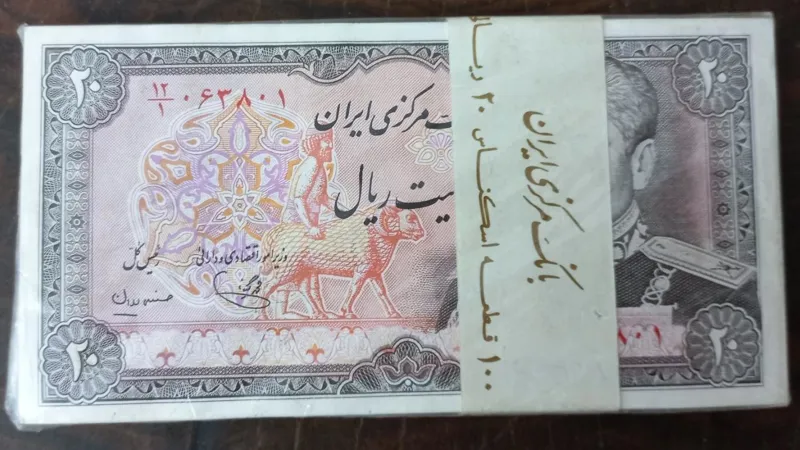 ۲۰
۲۰
۱۲/۱ ۰۶۳۸۰۱
ت مرکزی ایران
یست ریال
وزیر امور اقتصادی و دارائی
رئیس کل
۲۰
۲۰
۸۰۱
بانک مرکزی ایران
۱۰۰ قطعه اسکناس ۲۰ ریالی